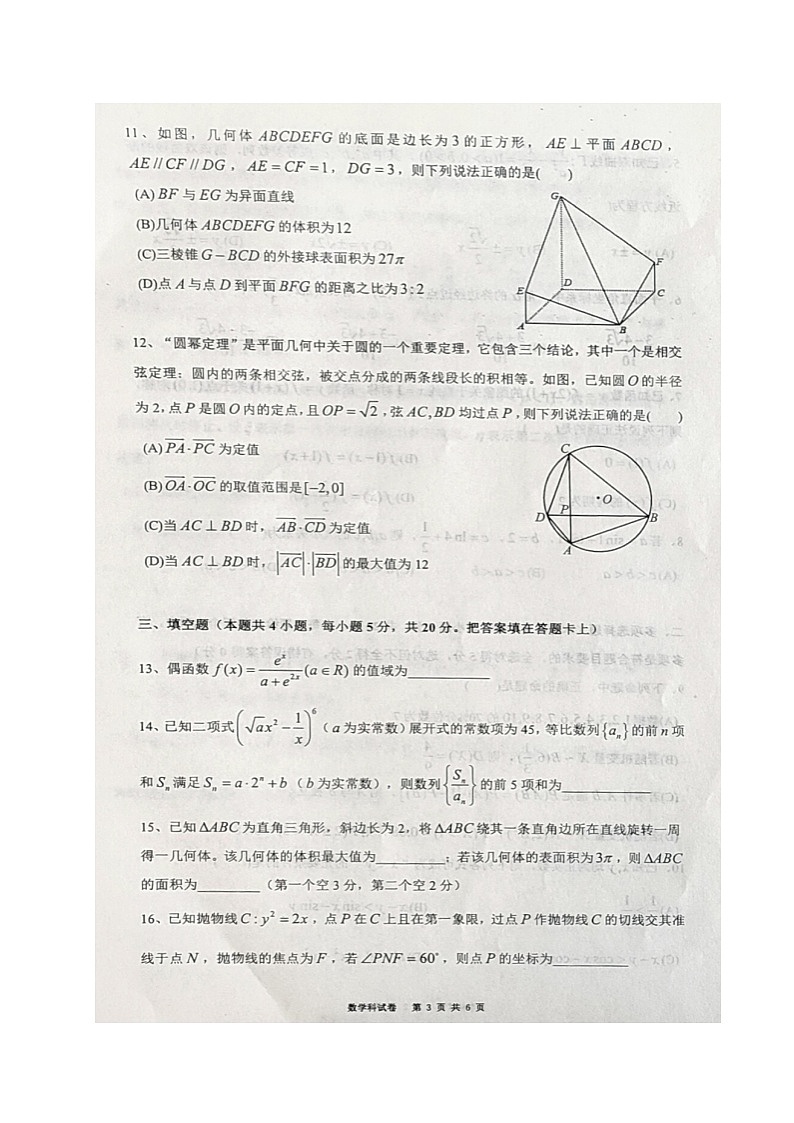 11、如图，几何体 ABCDEFG 的底面是边长为 3 的正方形， AE ⊥ 平面 ABCD ，
AE // CF // DG ， AE = CF = 1， DG = 3，则下列说法正确的是(    )
(A) BF 与 EG 为异面直线
(B)几何体 ABCDEFG 的体积为12
(C)三棱锥 G − BCD 的外接球表面积为 27π
(D)点 A 与点 D 到平面 BFG 的距离之比为 3 : 2
G
F
D
C
E
A
B
12、“圆幂定理”是平面几何中关于圆的一个重要定理，它包含三个结论，其中一个是相交
弦定理：圆内的两条相交弦，被交点分成的两条线段长的积相等。如图，已知圆 O 的半径
为 2，点 P 是圆 O 内的定点，且 OP = √2 ，弦 AC, BD 均过点 P，则下列说法正确的是(    )
(A) PA · PC 为定值
(B) OA · OC 的取值范围是 [−2,0]
(C)当 AC ⊥ BD 时， AB · CD 为定值
(D)当 AC ⊥ BD 时，|AC| · |BD| 的最大值为 12
C
O
D
P
B
A
三、填空题（本题共 4 小题，每小题 5 分，共 20 分。把答案填在答题卡上）
13、偶函数 f(x) = e^x / (a + e^{2x}) (a ∈ R) 的值域为____________
14、已知二项式 (√a x² − 1/x)^6 （ a 为实常数）展开式的常数项为 45，等比数列 {a_n} 的前 n 项
和 S_n 满足 S_n = a · 2^n + b （ b 为实常数），则数列 {S_n / a_n} 的前 5 项和为____________
15、已知 ΔABC 为直角三角形，斜边长为 2，将 ΔABC 绕其一条直角边所在直线旋转一周
得一几何体。该几何体的体积最大值为_________；若该几何体的表面积为 3π，则 ΔABC
的面积为_________（第一个空 3 分，第二个空 2 分）
16、已知抛物线 C : y² = 2x，点 P 在 C 上且在第一象限，过点 P 作抛物线 C 的切线交其准
线于点 N ，抛物线的焦点为 F ，若 ∠PNF = 60° ，则点 P 的坐标为___________
数学科试卷 第 3 页 共 6 页